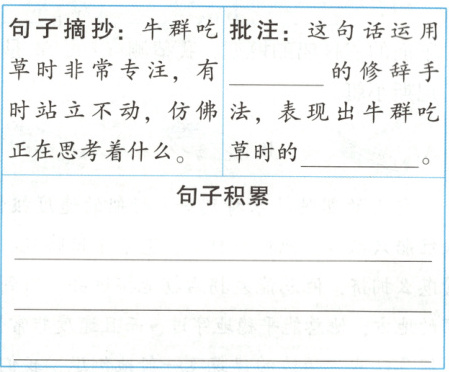 句子摘抄：牛群吃
草时非常专注，有
时站立不动，仿佛
正在思考着什么。
批注：这句话运用
________的修辞手
法，表现出牛群吃
草时的__________。
句子积累